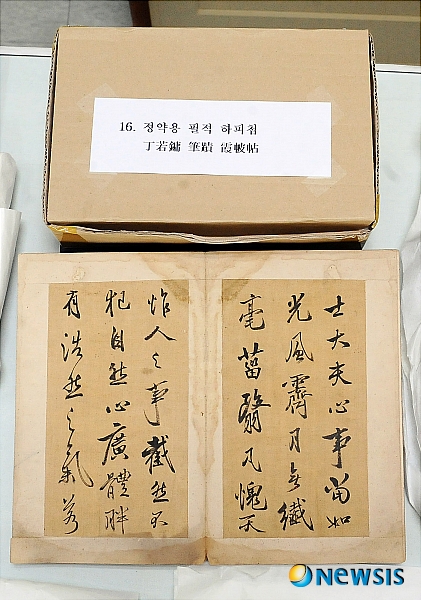 16. 정약용 필적 하피첩
丁若鏞 筆蹟 霞帔帖
士大夫心事當如
光風霽月無纖
毫菑翳凡愧天
怍人之事截然不
犯自然心廣體胖
有浩然之氣若
NEWSIS